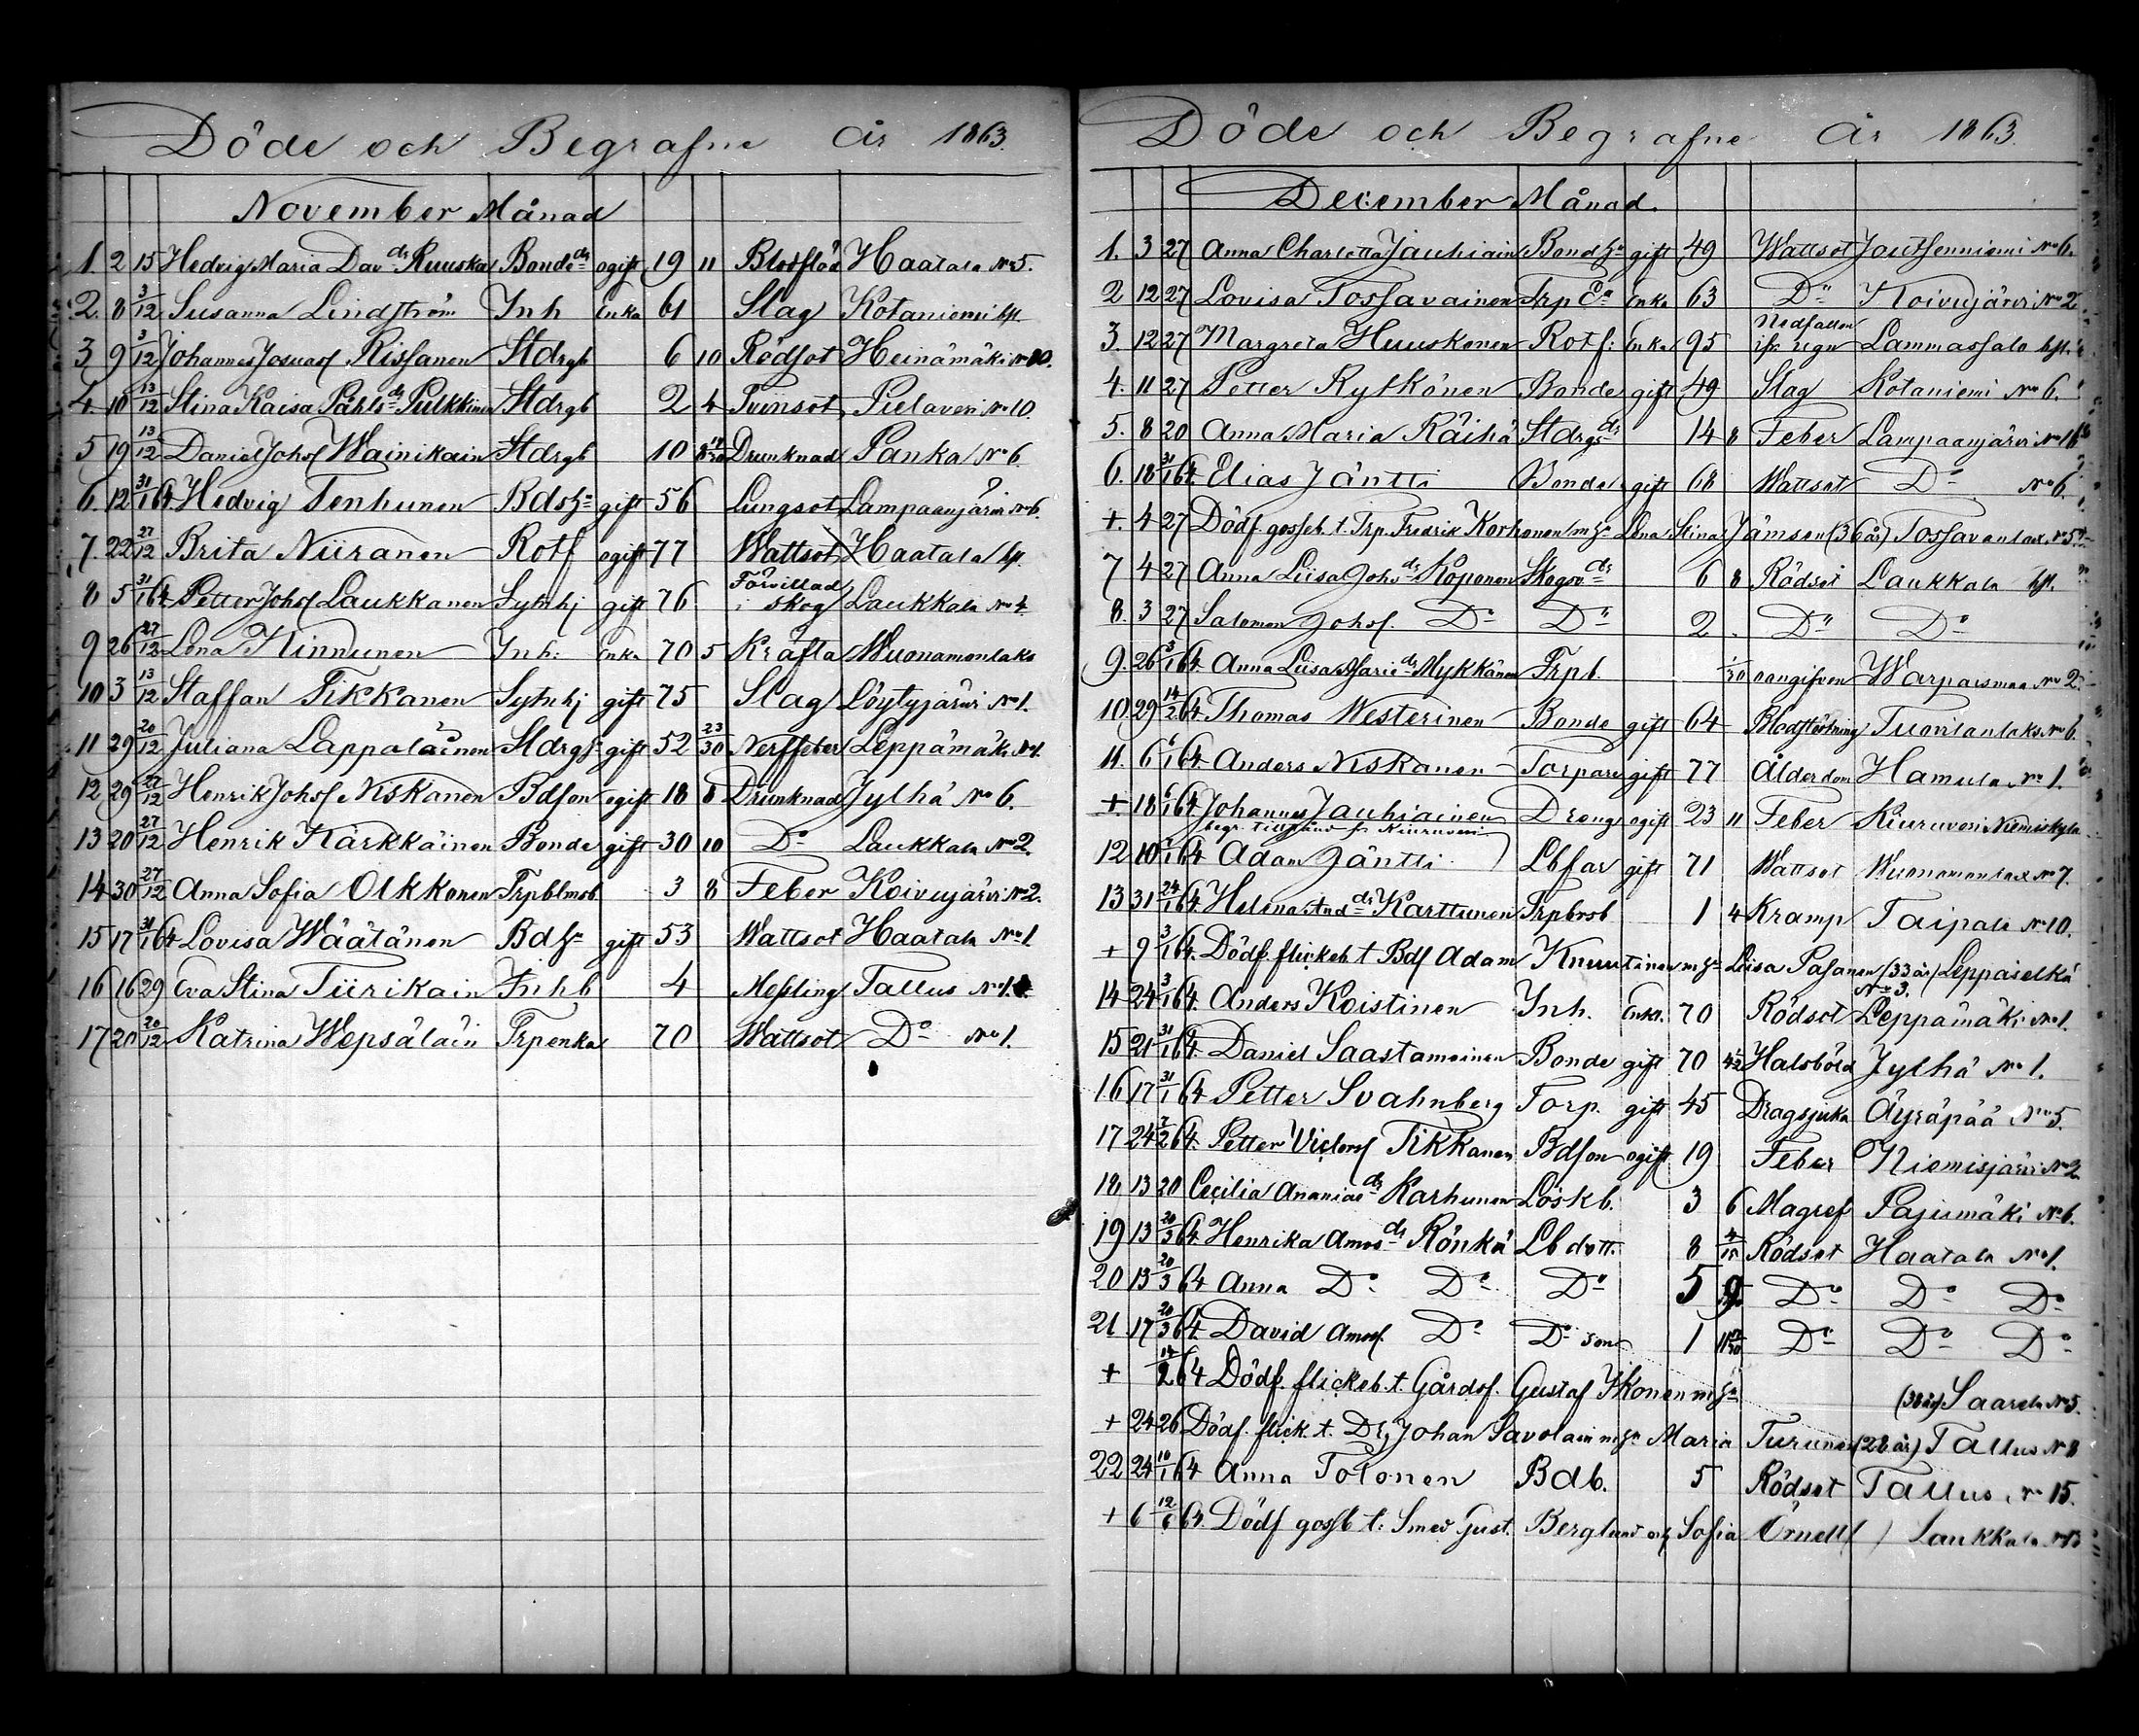 Döde och Begrafne År 1863.
November Månad
1. 2 15 Hedvig Maria Dav dr Ruuska Bonde dr ogift 19 11 Blodflöd Haatala No 5.
2. 8 3/12 Susanna Lindström Inh Enka 61 Slag Kotaniemi hft.
3 9 3/12 Johannes Josuasf Rissanen Stdrgb 6 10 Rödsot Heinämäki No 10.
4. 10 13/12 Stina Kaisa Påhls dr Pulkkinen Stdrgb 2 4 Tvinsot Pielaveri No 10.
5 19 13/12 Daniel Johsf Wainikain Stdrgb 10 Drunknad Panka No 6.
6. 12 31/1 64. Hedvig Tenhunen Bdsh gift 56 Lungsot Lampaanjärvi No 6.
7. 22 27/12 Brita Niiranen Rotf ogift 77 Wattsot Haatala hft.
8 5 31/1 64 Petter Johsf Laukkanen Sytnhj gift 76 Förvillad i skog Laukkala No 4.
9 26 27/12 Lena Kinnunen Inh: Enka 70 5 Kräfta Wuonamonlaks
10 3 13/12 Staffan Tikkanen Sytnhj gift 75 Slag Löytyjärvi No 1.
11 29 20/12 Juliana Lappalainen Stdrgh gift 52 23/30 Nerffeber Leppämäki No 1.
12 29 27/12 Henrik Johsf Niskanen Bdson ogift 18 8 Drunknad Jylhä No 6.
13 20 27/12 Henrik Kärkkäinen Bonde gift 30 10 Do Laukkala No 2.
14 30 27/12 Anna Sofia Olkkonen Trpblmsb 3 8 Feber Koivujärvi No 2.
15 17 31/1 64 Lovisa Wäätänen Bdh gift 53 Wattsot Haatala No 1.
16 16 29 Eva Stina Tiirikain Inhb 4 Messling Tallus No 1.
17 20 20/12 Katrina Wepsäläin Trpenka 70 Wattsot Do No 1.
Döde och Begrafne År 1863.
December Månad.
1. 3 27 Anna Charlotta Jauhiain Bondh gift 49 Wattsot Joutsenniemi No 6.
2 12 27 Lovisa Tossavainen Trp Ea Enka 63 Do Koivujärvi No 2
3. 12 27 Margreta Huuskonen Rotf: Enka 95 Nedfallen ifr. ugn Lammassalo hft.
4. 11 27 Petter Rytkönen Bonde gift 49 Slag Kotaniemi No 6.
5. 8 20 Anna Maria Räihä Stdrgs dr 14 8 Feber Lampaanjärvi No 16
6. 18 31/1 64. Elias Jäntti Bonde gift 68 Wattsot Do No 6.
+. 4 27 Dödf. gosseb. t. Trp. Fredrik Korhonen m h Lena Stina Jämsen (36 år) Tossavanlax No 5
7 4 27 Anna Liisa Johs dr Koponen Skogsv dr 6 8 Rödsot Laukkala hft.
8. 3 27 Salomon Johsf. Do Do 2 . Do Do
9. 26 3/1 64 Anna Liisa Maria dr Mykkänen Trpb. 1/30 oangifven Warparsmaa No 2.
10 29 14/2 64 Thomas Westerinen Bonde gift 64 Blodstörtning Tuovilanlaks No 6.
11. 6 6/1 64 Anders Niskanen Torpare gift 77 Ålderdom Hamula No 1.
+ 18 6/1 64 Johannes Jauhiainen Dreng ogift 23 11 Feber Kiuruvesi Niemiskyla
begr. tillstånd fr Kiuruvesi
12 10 64 Adam Jäntti Lbfar gift 71 Wattsot Wuonamonlax No 7.
13 31 24/1 64. Helena And dr Karttunen Trpbrsb 1 4 Kramp Taipale No 10.
+ 9 3/1 64. Dödf. flickeb t Bdf Adam Knuutinen m h Liisa Pasanen (33 år) Leppäselkä No 3.
14 24 3/1 64. Anders Koistinen Inh. Enkl. 70 Rödsot Leppämäki No 1.
15 21 31/1 64. Daniel Saastamoinen Bonde gift 70 4/12 Halsböld Jylhä No 1.
16 17 31/1 64. Petter Svahnberg Torp. gift 45 Dragsjuka Äyräpää No 5.
17 24 7/2 64. Petter Victorsf Tikkanen Bdson ogift 19 Feber Niemisjärvi No 2
18. 13 20 Cecilia Ananias dr Karhunen Löskb. 3 6 Magref Pajumäki No 6.
19 13 20/3 64. Henrika Amos dr Rönkä Lb dott. 8 Rödsot Haatala No 1.
20 13 20/3 64 Anna Do Do Do 5 9 Do Do Do
21 17 20/3 64. David Amosf. Do Do son 1 Do Do Do
+ 14/2 64 Dödf. flickeb. t. Gårdsf. Gustaf Ikonen m h (38 år) Saarela No 5.
+ 24 26 Dödf. flick. t. Dr. Johan Savolain m h Maria Turunen (28 år) Tallus No 8
22 24 10/1 64 Anna Tolonen Bdb. 5 Rödsot Tallus No 15.
+ 6 12/6 64. Dödf gossb t: Smed Gust. Berglund o h Sofia Örnell ) Laukkala